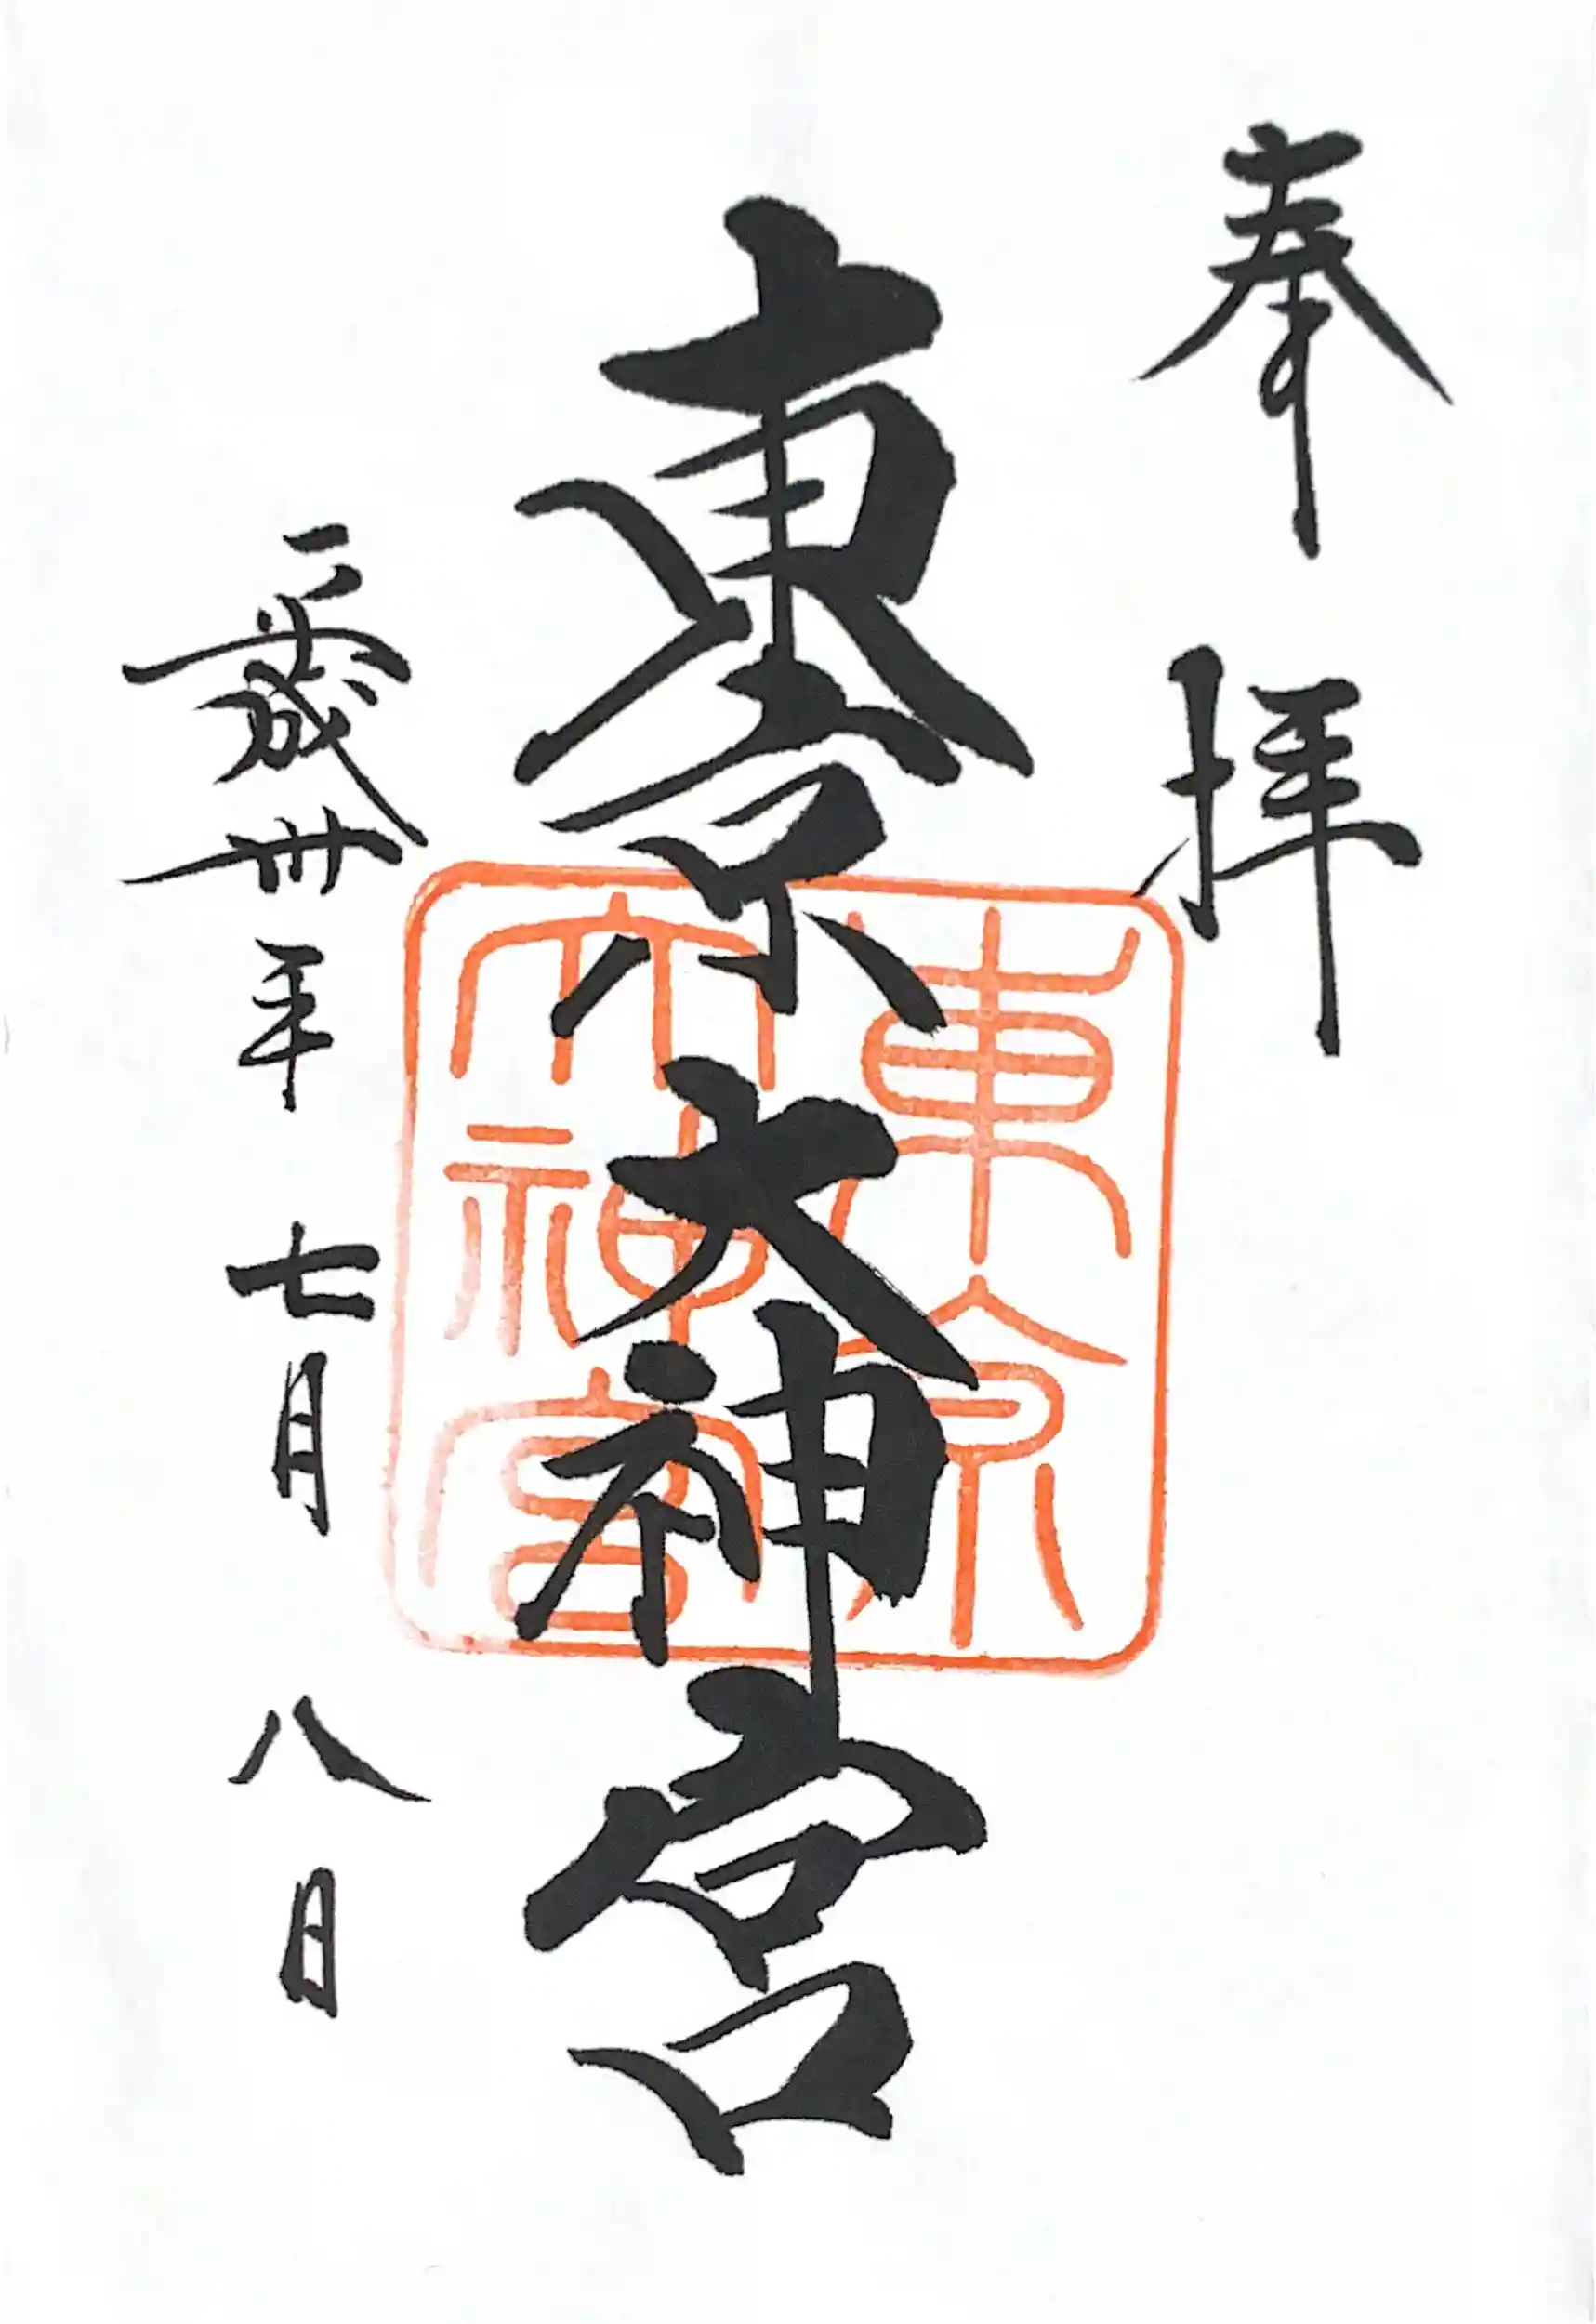 奉拝
東京大神宮
平成卅年七月八日
東京
大神宮